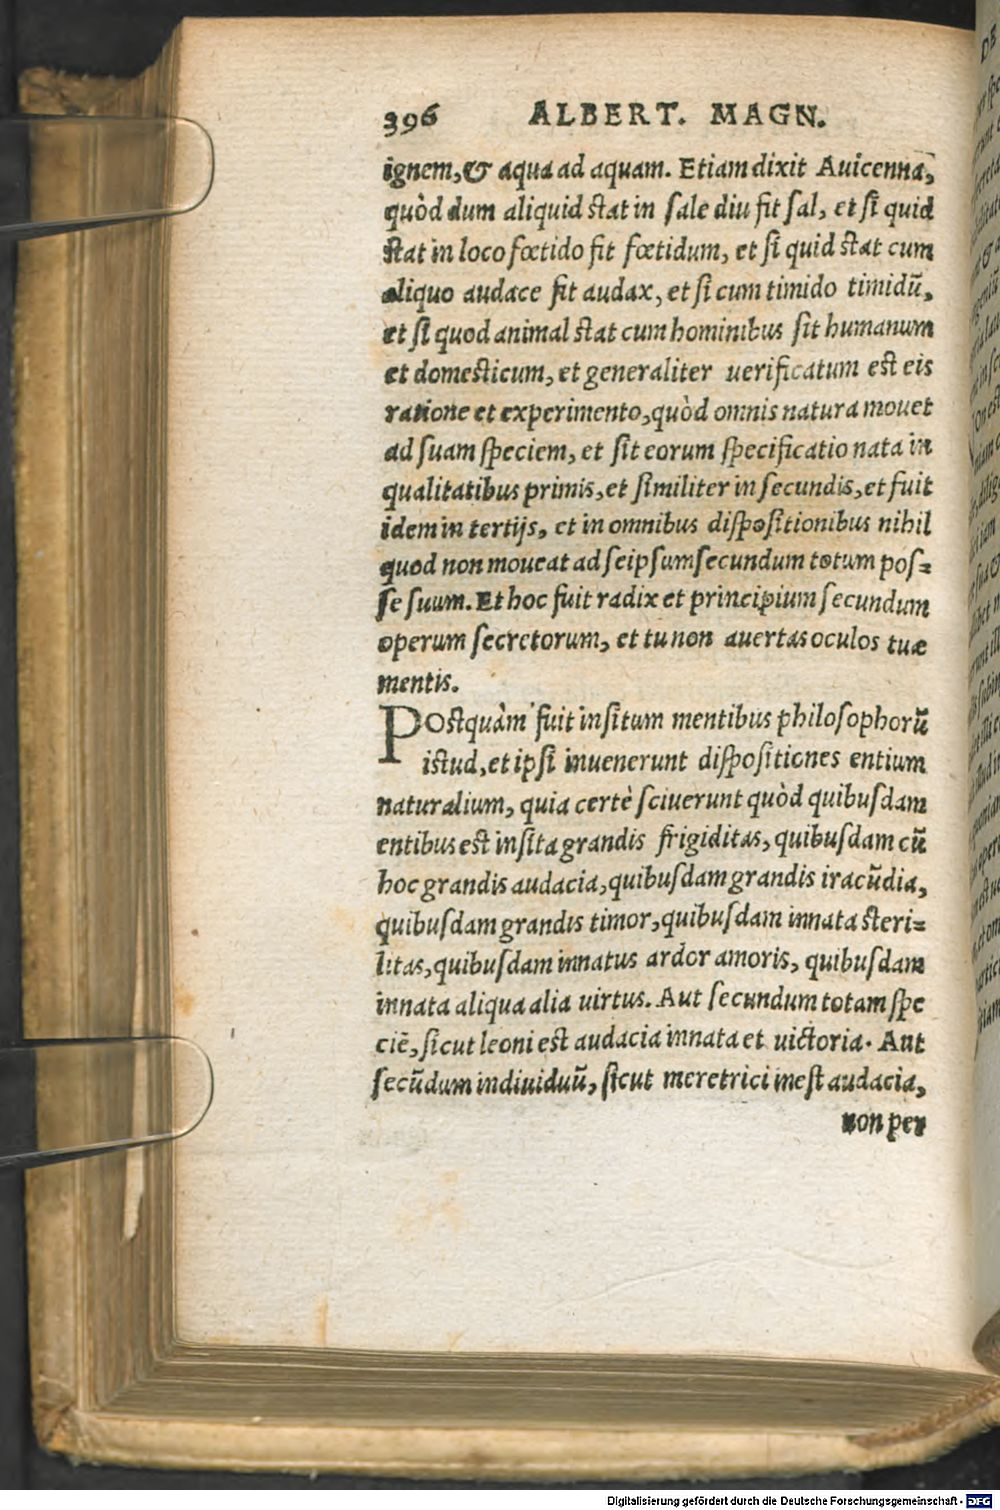 396 ALBERT. MAGN.
ignem, & aqua ad aquam. Etiam dixit Auicenna,
quòd dum aliquid stat in sale diu fit sal, et si quid
stat in loco fœtido fit fœtidum, et si quid stat cum
aliquo audace fit audax, et si cum timido timidũ,
et si quod animal stat cum hominibus fit humanum
et domesticum, et generaliter uerificatum est eis
ratione et experimento, quòd omnis natura mouet
ad suam speciem, et sit eorum specificatio nata in
qualitatibus primis, et similiter in secundis, et fuit
idem in tertijs, et in omnibus dispositionibus nihil
quod non moueat ad seipsum secundum totum pos=
se suum. Et hoc fuit radix et principium secundum
operum secretorum, et tu non auertas oculos tuæ
mentis.
POstquàm fuit insitum mentibus philosophorũ
istud, et ipsi inuenerunt dispositiones entium
naturalium, quia certè sciuerunt quòd quibusdam
entibus est insita grandis frigiditas, quibusdam cũ
hoc grandis audacia, quibusdam grandis iracũdia,
quibusdam grandis timor, quibusdam innata steri=
litas, quibusdam innatus ardor amoris, quibusdam
innata aliqua alia uirtus. Aut secundum totam spe
ciẽ, sicut leoni est audacia innata et uictoria. Aut
secũdum indiuiduũ, sicut meretrici inest audacia,
non per
Digitalisierung gefördert durch die Deutsche Forschungsgemeinschaft - DFG